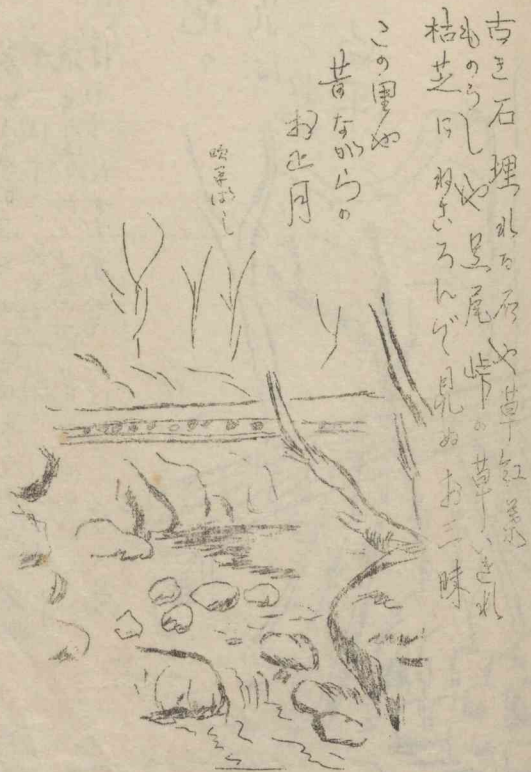 古き石埋れた石や草紅葉
ものうしや黒尾峠の草いきれ
枯芝にねころんで見ぬお三昧
この里や
昔ながらの
お正月